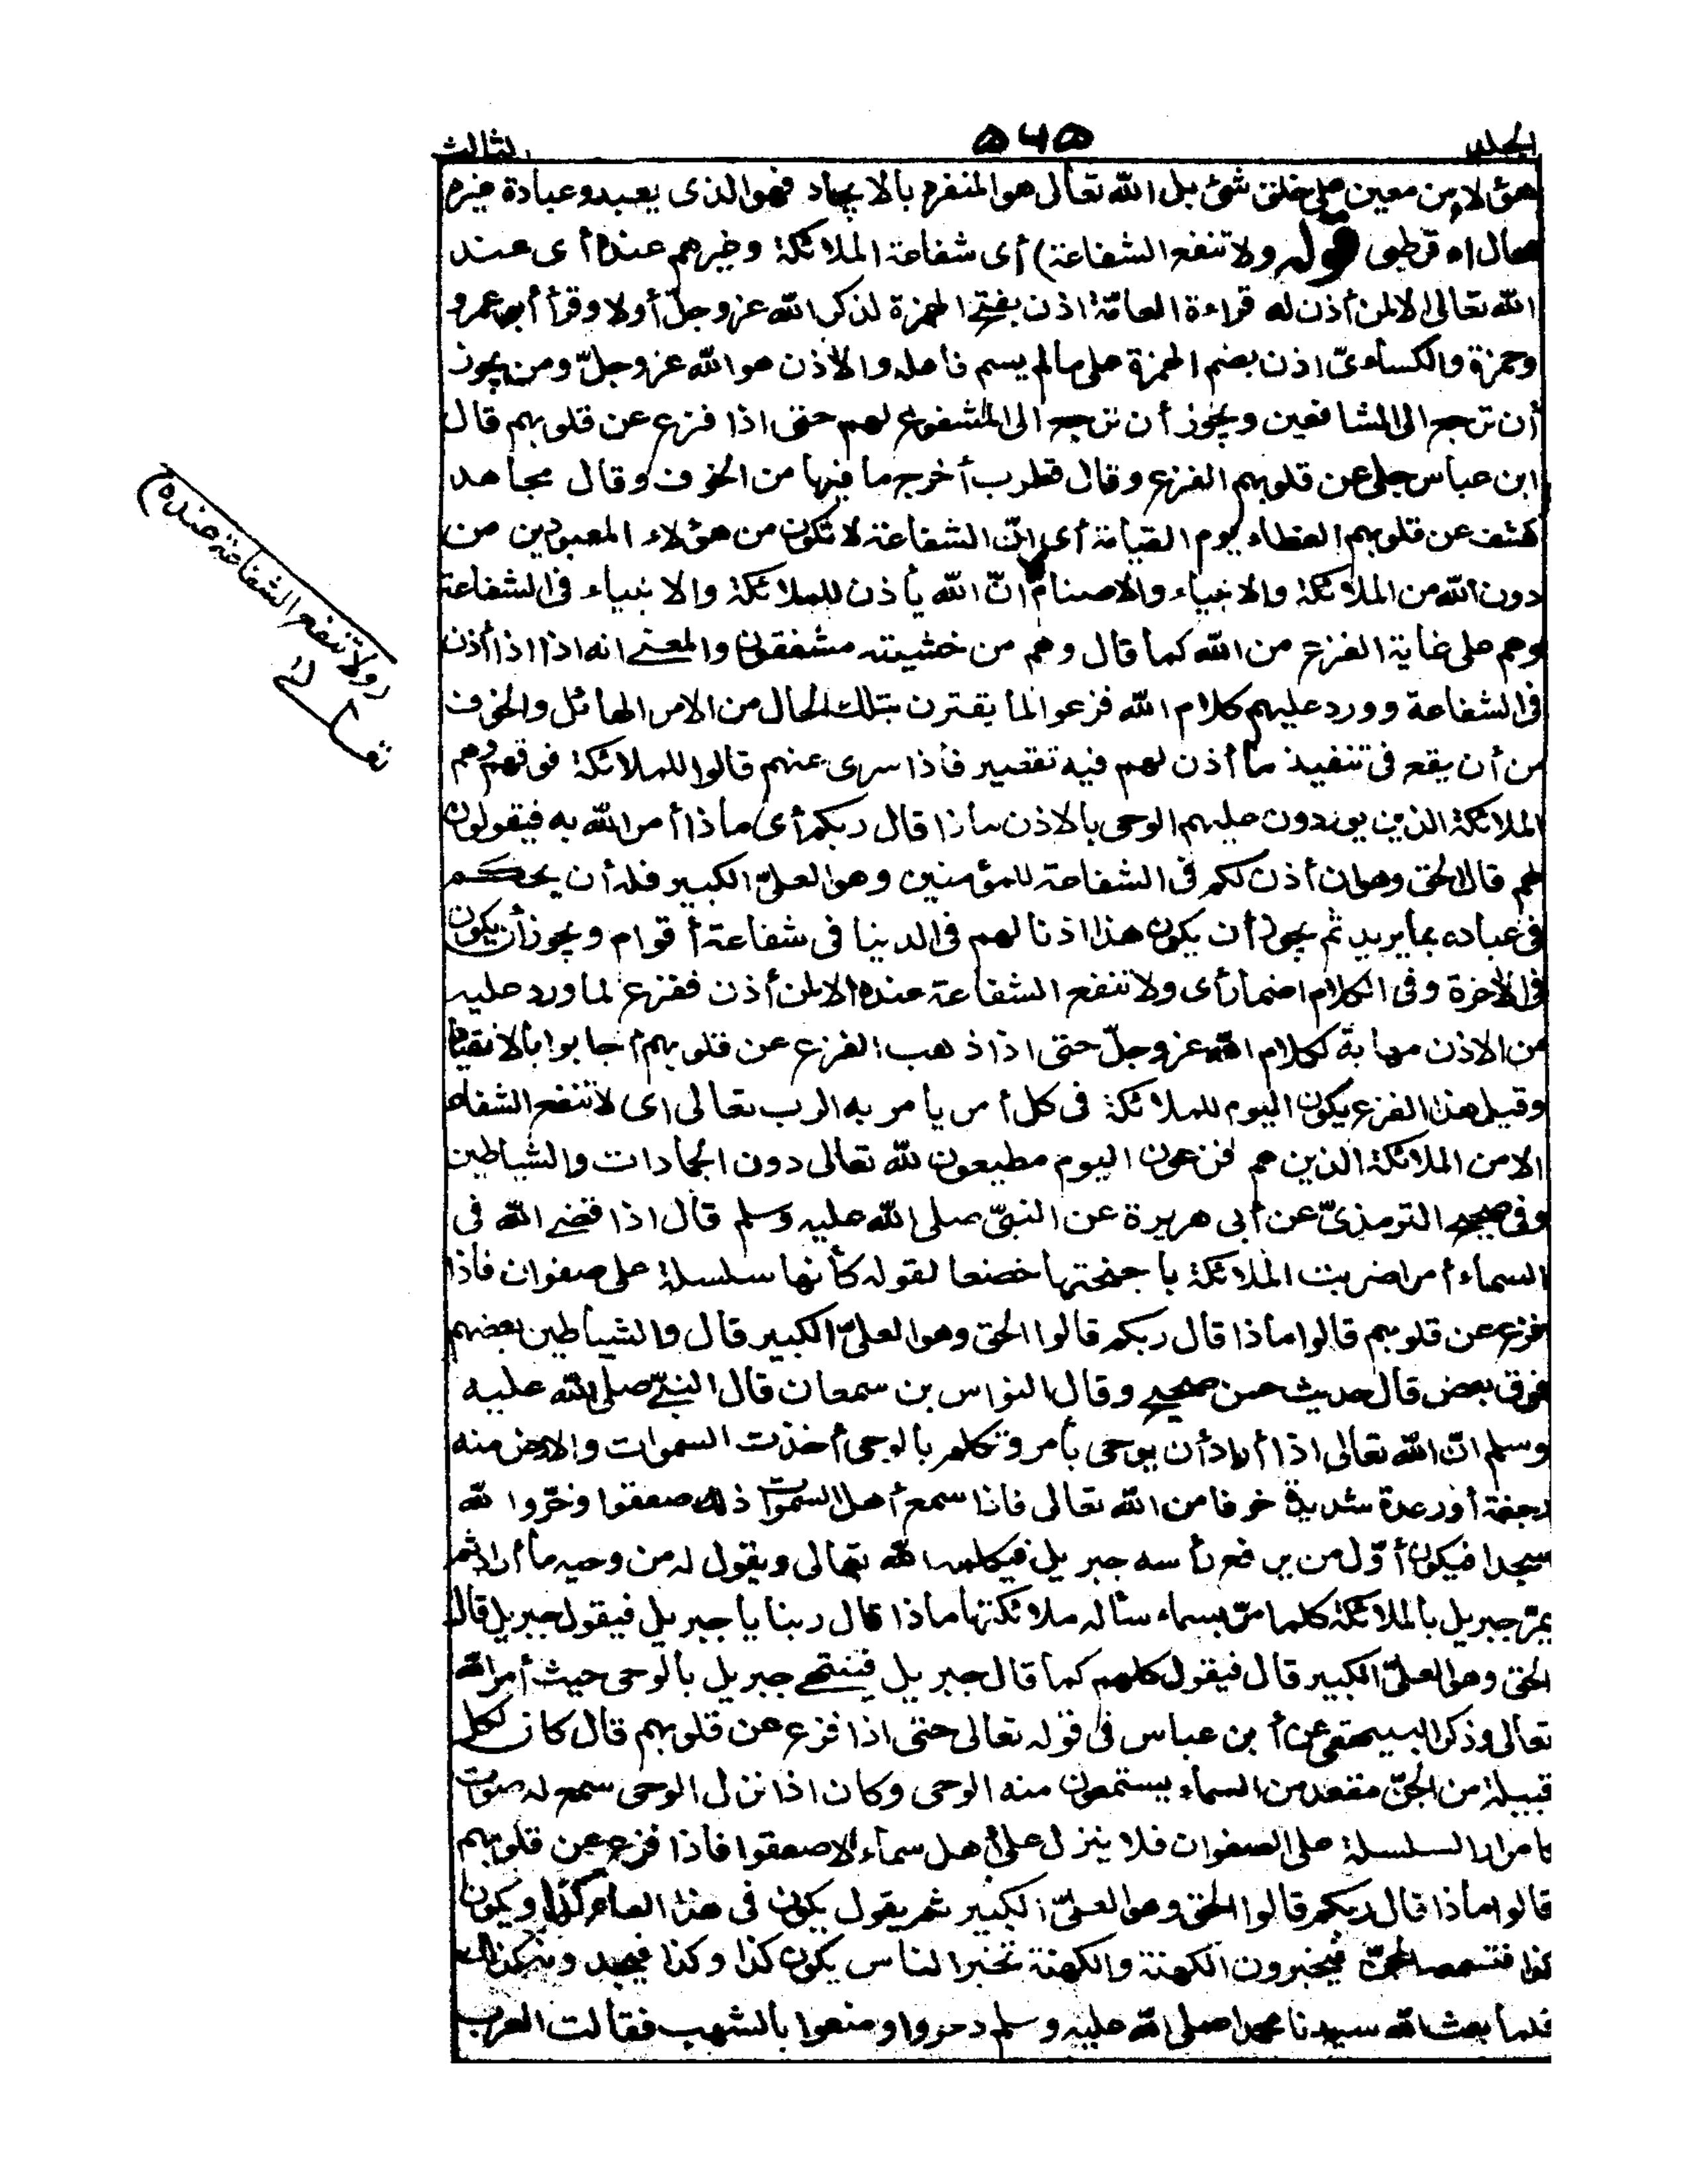 الجلد ٥٦٥ الثالث
هؤلاء من معين على خلق شئ بل الله تعالى هو المنفرد بالايجاد فهو الذى يعبد وعبادة غيره
محال اه قرطبى قوله ولا تنفع الشفاعة) أى شفاعة الملائكة وغيرهم عنده أى عند
الله تعالى الا لمن أذن له قراءة العامّة اذن بفتح الهمزة لذكر الله عز وجلّ أولا وقرأ أبو عمرو
وحمزة والكساءىّ اذن بضم الهمزة على ما لم يسم فاعله والاذن هو الله عز وجلّ ومن يجوز
أن ترجع الى الشافعين ويجوز أن ترجع الى المشفوع لهم حتى اذا فزع عن قلوبهم قال
ابن عباس جلى عن قلوبهم الفزع وقال قطرب أخرج ما فيها من الخوف وقال مجاهد
كشف عن قلوبهم الغطاء يوم القيامة أى انّ الشفاعة لا تكون من هؤلاء المعبودين من
دون الله من الملائكة والانبياء والاصنام انّ الله يأذن للملائكة والانبياء فى الشفاعة
وهم على غاية الفزع من الله كما قال وهم من خشيته مشفقون والمعنى انه اذا اذا أذن
فى الشفاعة وورد عليهم كلام الله فزعوا لما يقترن بتلك الحال من الامر الهائل والخوف
من أن يقع فى تنفيذ ما أذن لهم فيه تقصير فاذا سرى عنهم قالوا للملائكة فوقهم وهم
الملائكة الذين يوردون عليهم الوحى بالاذن ماذا قال ربكم أى ماذا أمر الله به فيقولون
لهم قال الحق وهو ان أذن لكم فى الشفاعة للمؤمنين وهو العلىّ الكبير فله أن يحكم
فى عباده بما يريد ثم يجوز أن يكون هذا اذنا لهم فى الدنيا فى شفاعة أقوام ويجوز أن يكون
فى الآخرة وفى الكلام اضمار أى ولا تنفع الشفاعة عنده الا لمن أذن ففزع لما ورد عليه
من الاذن مهابة لكلام الله عز وجلّ حتى اذا ذهب الفزع عن قلوبهم أجابوا بالانقياد
وقيل هذا الفزع يكون اليوم للملائكة فى كل أمر يأمر به الرب تعالى اى لا تنفع الشفاعة
الا من الملائكة الذين هم فزعون اليوم مطيعون لله تعالى دون الجمادات والشياطين
وفى صحيح الترمذىّ عن أبى هريرة عن النبىّ صلى الله عليه وسلم قال اذا قضى الله فى
السماء أمرا ضربت الملائكة بأجنحتها خضعا لقوله كأنها سلسلة على صفوان فاذا
فزع عن قلوبهم قالوا ماذا قال ربكم قالوا الحق وهو العلىّ الكبير قال والشياطين بعضهم
فوق بعض قال حديث حسن صحيح وقال النواس بن سمعان قال النبىّ صلى الله عليه
وسلم انّ الله تعالى اذا أراد أن يوحى بأمر وتكلم بالوحى أخذت السموات والارض منه
رجفة أو رعدة شديدة خوفا من الله تعالى فاذا سمع أهل السموات ذلك صعقوا وخرّوا لله
سجدا فيكون أوّل من يرفع رأسه جبريل فيكلمه الله تعالى ويقول له من وحيه ما أراد ثم
يمرّ جبريل بالملائكة كلما مرّ بسماء سأله ملائكتها ماذا قال ربنا يا جبريل فيقول جبريل قال
الحق وهو العلىّ الكبير قال فيقول كلهم كما قال جبريل فينتهى جبريل بالوحى حيث أمر الله
تعالى وذكر البيهقى عن أبن عباس فى قوله تعالى حتى اذا فزع عن قلوبهم قال كان لكل
قبيلة من الجنّ مقعد من السماء يستمعون منه الوحى وكان اذا نزل الوحى سمع له صوت
كامرار السلسلة على الصفوان فلا ينزل على أهل سماء الا صعقوا فاذا فزع عن قلوبهم
قالوا ماذا قال ربكم قالوا الحق وهو العلىّ الكبير ثم يقول يكون فى هذا العام كذا ويكون
كذا فتسمعه الجنّ فيخبرون الكهنة والكهنة تخبر الناس يكون كذا وكذا فيجدونه كذلك
فلما بعث الله سيدنا محمدا صلى الله عليه وسلم دحروا ومنعوا بالشهب فقالت العرب
(ولا تنفع الشفاعة عنده)
تعالى